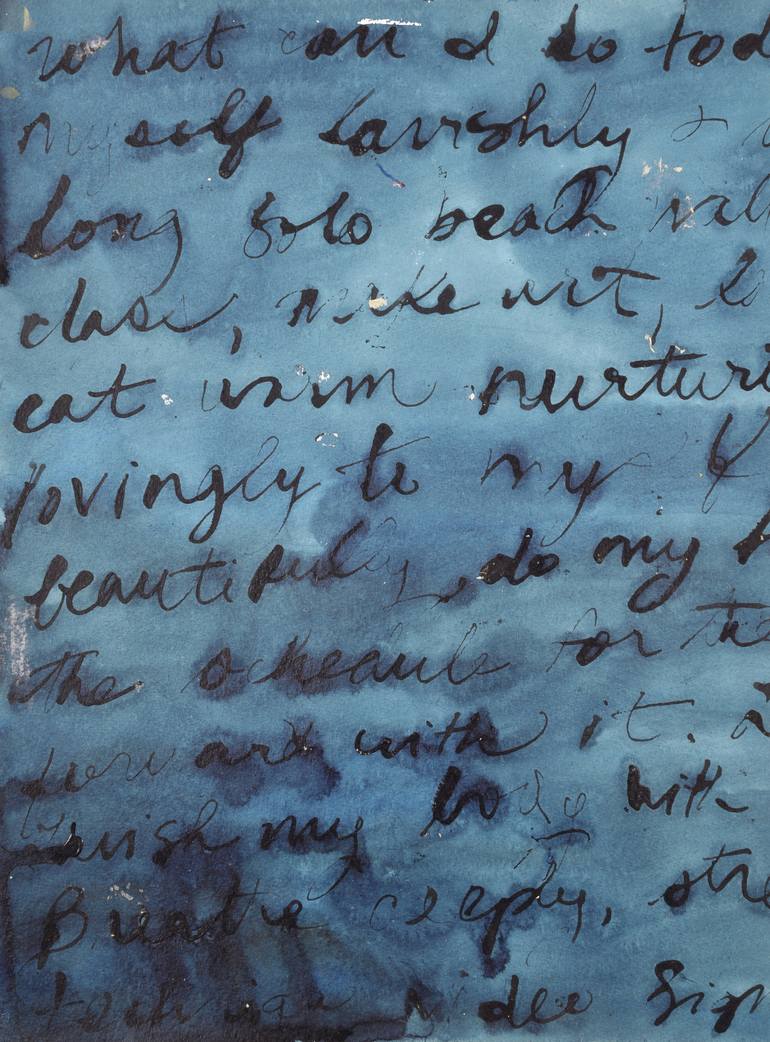 what can I do tod
myself lavishly +
long solo beach wal
class, make art,
eat warm nurturi
lovingly to my
beautifully, do my
the schedule for the
forward with it.
lavish my body with
Breathe deeply, stre
technique video Sign